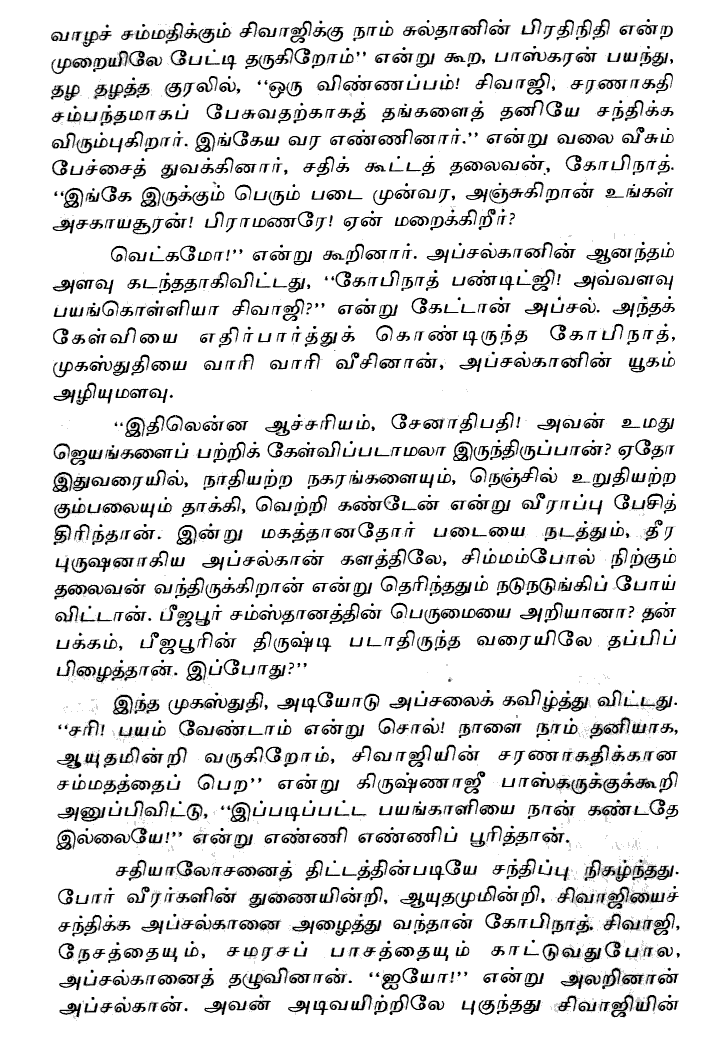 வாழச் சம்மதிக்கும் சிவாஜிக்கு நாம் சுல்தானின் பிரதிநிதி என்ற
முறையிலே பேட்டி தருகிறோம்” என்று கூற, பாஸ்கரன் பயந்து,
தழ தழத்த குரலில், “ஒரு விண்ணப்பம்! சிவாஜி, சரணாகதி
சம்பந்தமாகப் பேசுவதற்காகத் தங்களைத் தனியே சந்திக்க
விரும்புகிறார். இங்கேய வர எண்ணினார்.” என்று வலை வீசும்
பேச்சைத் துவக்கினார், சதிக் கூட்டத் தலைவன், கோபிநாத்.
“இங்கே இருக்கும் பெரும் படை முன்வர, அஞ்சுகிறான் உங்கள்
அசகாயசூரன்! பிராமணரே! ஏன் மறைக்கிறீர்?
வெட்கமோ!” என்று கூறினார். அப்சல்கானின் ஆனந்தம்
அளவு கடந்ததாகிவிட்டது, “கோபிநாத் பண்டிட்ஜி! அவ்வளவு
பயங்கொள்ளியா சிவாஜி?” என்று கேட்டான் அப்சல். அந்தக்
கேள்வியை எதிர்பார்த்துக் கொண்டிருந்த கோபிநாத்,
முகஸ்துதியை வாரி வாரி வீசினான், அப்சல்கானின் யூகம்
அழியுமளவு.
“இதிலென்ன ஆச்சரியம், சேனாதிபதி! அவன் உமது
ஜெயங்களைப் பற்றிக் கேள்விப்படாமலா இருந்திருப்பான்? ஏதோ
இதுவரையில், நாதியற்ற நகரங்களையும், நெஞ்சில் உறுதியற்ற
கும்பலையும் தாக்கி, வெற்றி கண்டேன் என்று வீராப்பு பேசித்
திரிந்தான். இன்று மகத்தானதோர் படையை நடத்தும், தீர
புருஷனாகிய அப்சல்கான் களத்திலே, சிம்மம்போல் நிற்கும்
தலைவன் வந்திருக்கிறான் என்று தெரிந்ததும் நடுநடுங்கிப் போய்
விட்டான். பீஜபூர் சம்ஸ்தானத்தின் பெருமையை அறியானா? தன்
பக்கம், பீஜபூரின் திருஷ்டி படாதிருந்த வரையிலே தப்பிப்
பிழைத்தான். இப்போது?”
இந்த முகஸ்துதி, அடியோடு அப்சலைக் கவிழ்த்து விட்டது.
“சரி! பயம் வேண்டாம் என்று சொல்! நாளை நாம் தனியாக,
ஆயுதமின்றி வருகிறோம், சிவாஜியின் சரணாகதிக்கான
சம்மதத்தைப் பெற” என்று கிருஷ்ணாஜீ பாஸ்கருக்குக்கூறி
அனுப்பிவிட்டு, “இப்படிப்பட்ட பயங்காளியை நான் கண்டதே
இல்லையே!” என்று எண்ணி எண்ணிப் பூரித்தான்.
சதியாலோசனைத் திட்டத்தின்படியே சந்திப்பு நிகழ்ந்தது.
போர் வீரர்களின் துணையின்றி, ஆயுதமுமின்றி, சிவாஜியைச்
சந்திக்க அப்சல்கானை அழைத்து வந்தான் கோபிநாத். சிவாஜி,
நேசத்தையும், சமரசப் பாசத்தையும் காட்டுவதுபோல,
அப்சல்கானைத் தழுவினான். “ஐயோ!” என்று அலறினான்
அப்சல்கான். அவன் அடிவயிற்றிலே புகுந்தது சிவாஜியின்